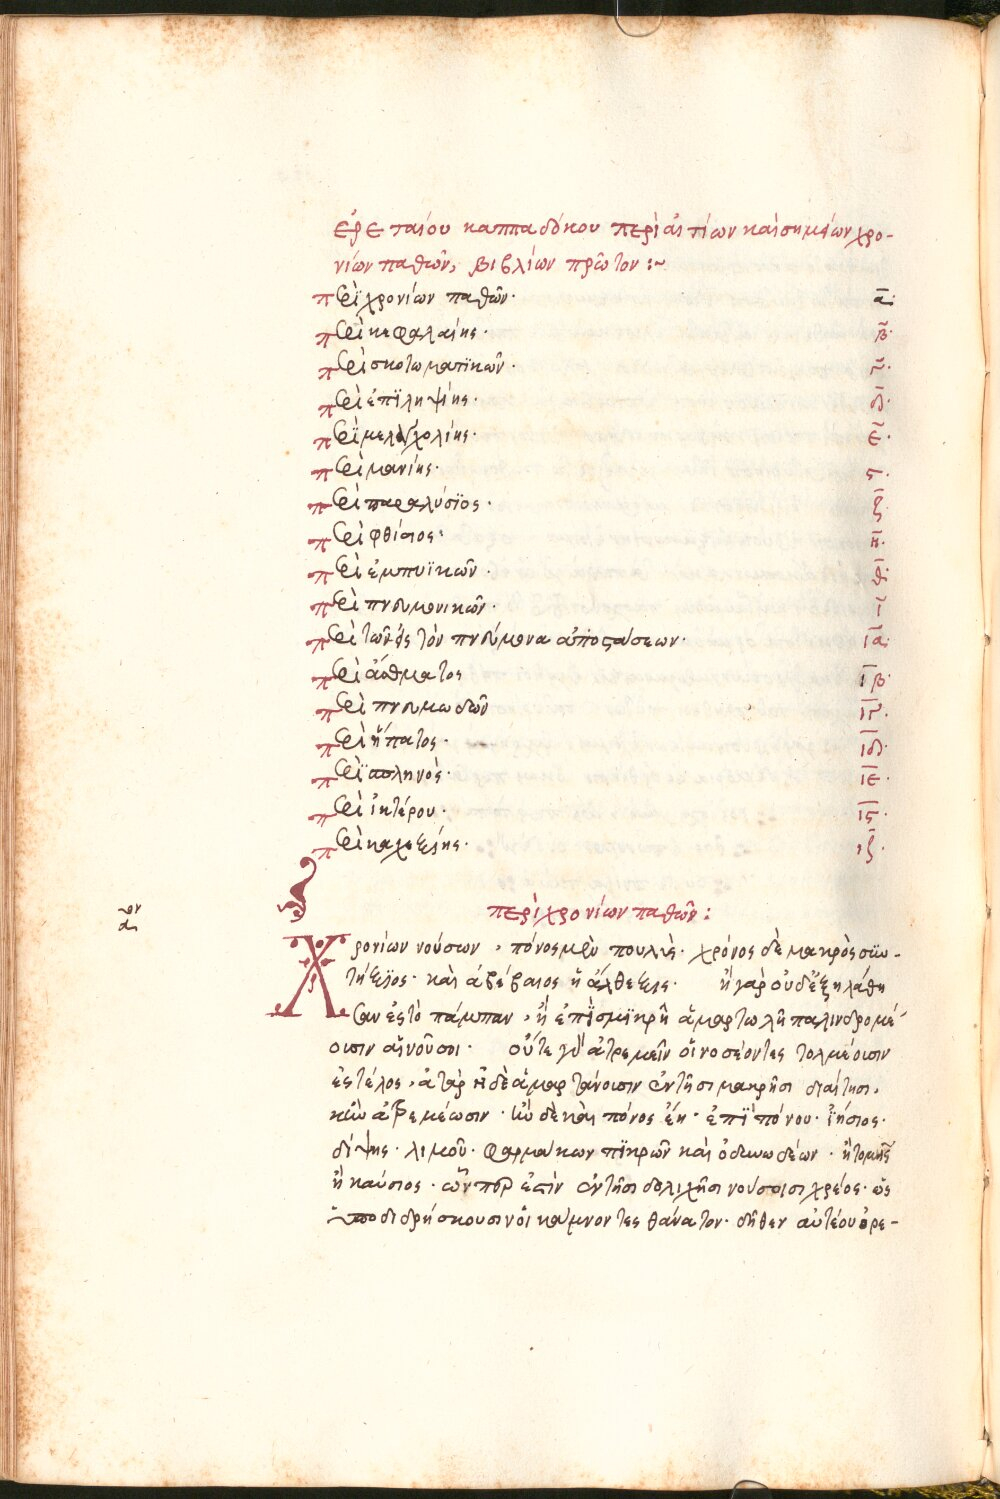 ἀρεταίου καππαδόκου περὶ αἰτίων καὶ σημείων χρο-
νίων παθῶν, βιβλίων πρῶτον :~
περὶ χρονίων παθῶν· α·
περὶ κεφαλαίης· β·
περὶ σκοτωματϊκῶν· γ·
περὶ ἐπϊληψίης· δ·
περὶ μελαγχολίης· ε·
περὶ μανίης· ϛ·
περὶ παραλύσϊος· ζ·
περὶ φθίσιος· η·
περὶ ἐμπυϊκῶν· θ·
περὶ πνευμονικῶν· ι
περὶ τῶν ἐς τὸν πνεύμονα ἀποστάσεων· ια·
περὶ ἄσθματος ιβ·
περὶ πνευμωδῶν ιγ·
περὶ ἥπατος· ιδ·
περὶ σπληνὸς· ιε·
περὶ ἰκτέρου· ιϛ·
περὶ καχεξίης· ιζ·
περὶ χρονίων παθῶν :
Χρονίων νούσων, πόνος μὲν πουλὺς· χρόνος δὲ μακρὸς συν-
τήξϊος· καὶ ἀβέβαιος ἡ ἄλθεξις· ἢ γὰρ οὐδ' ἐξηλάθη
σαν ἐς τὸ πάμπαν, ἢ ἐπὶ σμϊκρῇ ἁμαρτωλῇ παλινδρομέ
ουσιν αἱ νοῦσοι· οὔτε γὰρ ἀτρεμεῖν οἱ νοσέοντες τολμέουσιν
ἐς τέλος, ἀτὰρ ἠδὲ ἁμαρτάνουσιν ἐν τῇσι μακρῇσι διαίτησι,
κἢν ἀτρεμέωσιν· ἢν δὲ καὶ πόνος ἔῃ· ἐπὶ πόνου· ἰήσιος·
δίψης· λιμοῦ· φαρμάκων πϊκρῶν καὶ ὀδυνωδέων· ἢ τομῆς
ἢ καύσιος· ὧν περ ἐστὶν ἐν τῇσι δολιχῇσι νούσοισι χρέος· ὡς
ὑποδιδρήσκουσιν οἱ κάμνοντες θάνατον· δῆθεν αὐτέου ὀρε-